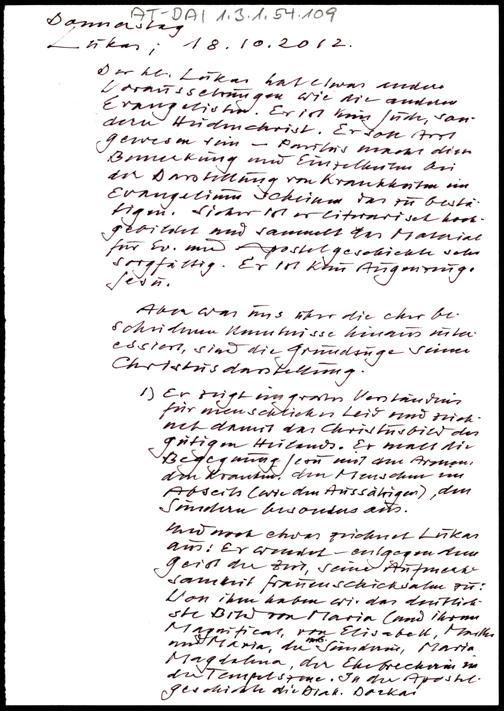 AT-DAI 1.3.1.54.109
Donnerstag
Lukas; 18.10.2012.
Der hl. Lukas hat etwas andere
Voraussetzungen wie die anderen
Evangelisten. Er ist kein Jude, son-
dern Heidenchrist. Er soll Arzt
gewesen sein – Paulus macht diese
Bemerkung und Einzelheiten bei
der Darstellung von Krankheiten im
Evangelium scheinen das zu bestä-
tigen. Sicher ist er literarisch hoch-
gebildet und sammelt das Material
für Ev. und Apostelgeschichte sehr
sorgfältig. Er ist kein Augenzeuge
Jesu.
Aber was uns über die eher be-
scheidenen Kenntnisse hinaus inter-
essiert, sind die Grundzüge seiner
Christusdarstellung.
1) Er zeigt ein großes Verständnis
für menschliches Leid und zeich-
net damit das Christusbild des
gütigen Heilands. Er malt die
Begegnung Jesu mit den Armen,
den Kranken, den Menschen im
Abseits (wie den Aussätzigen), den
Sündern besonders aus.
Und noch etwas zeichnet Lukas
aus: Er wendet – entgegen dem
Geist der Zeit, seine Aufmerk-
samkeit Frauenschicksalen zu:
Von ihm haben wir das deutlich-
ste Bild von Maria (und ihrem
Magnificat, von Elisabeth, Martha
und Maria, der Sünderin, Maria
Magdalena, der Ehebrecherin in
der Tempelszene. In der Apostel-
geschichte die Diak.